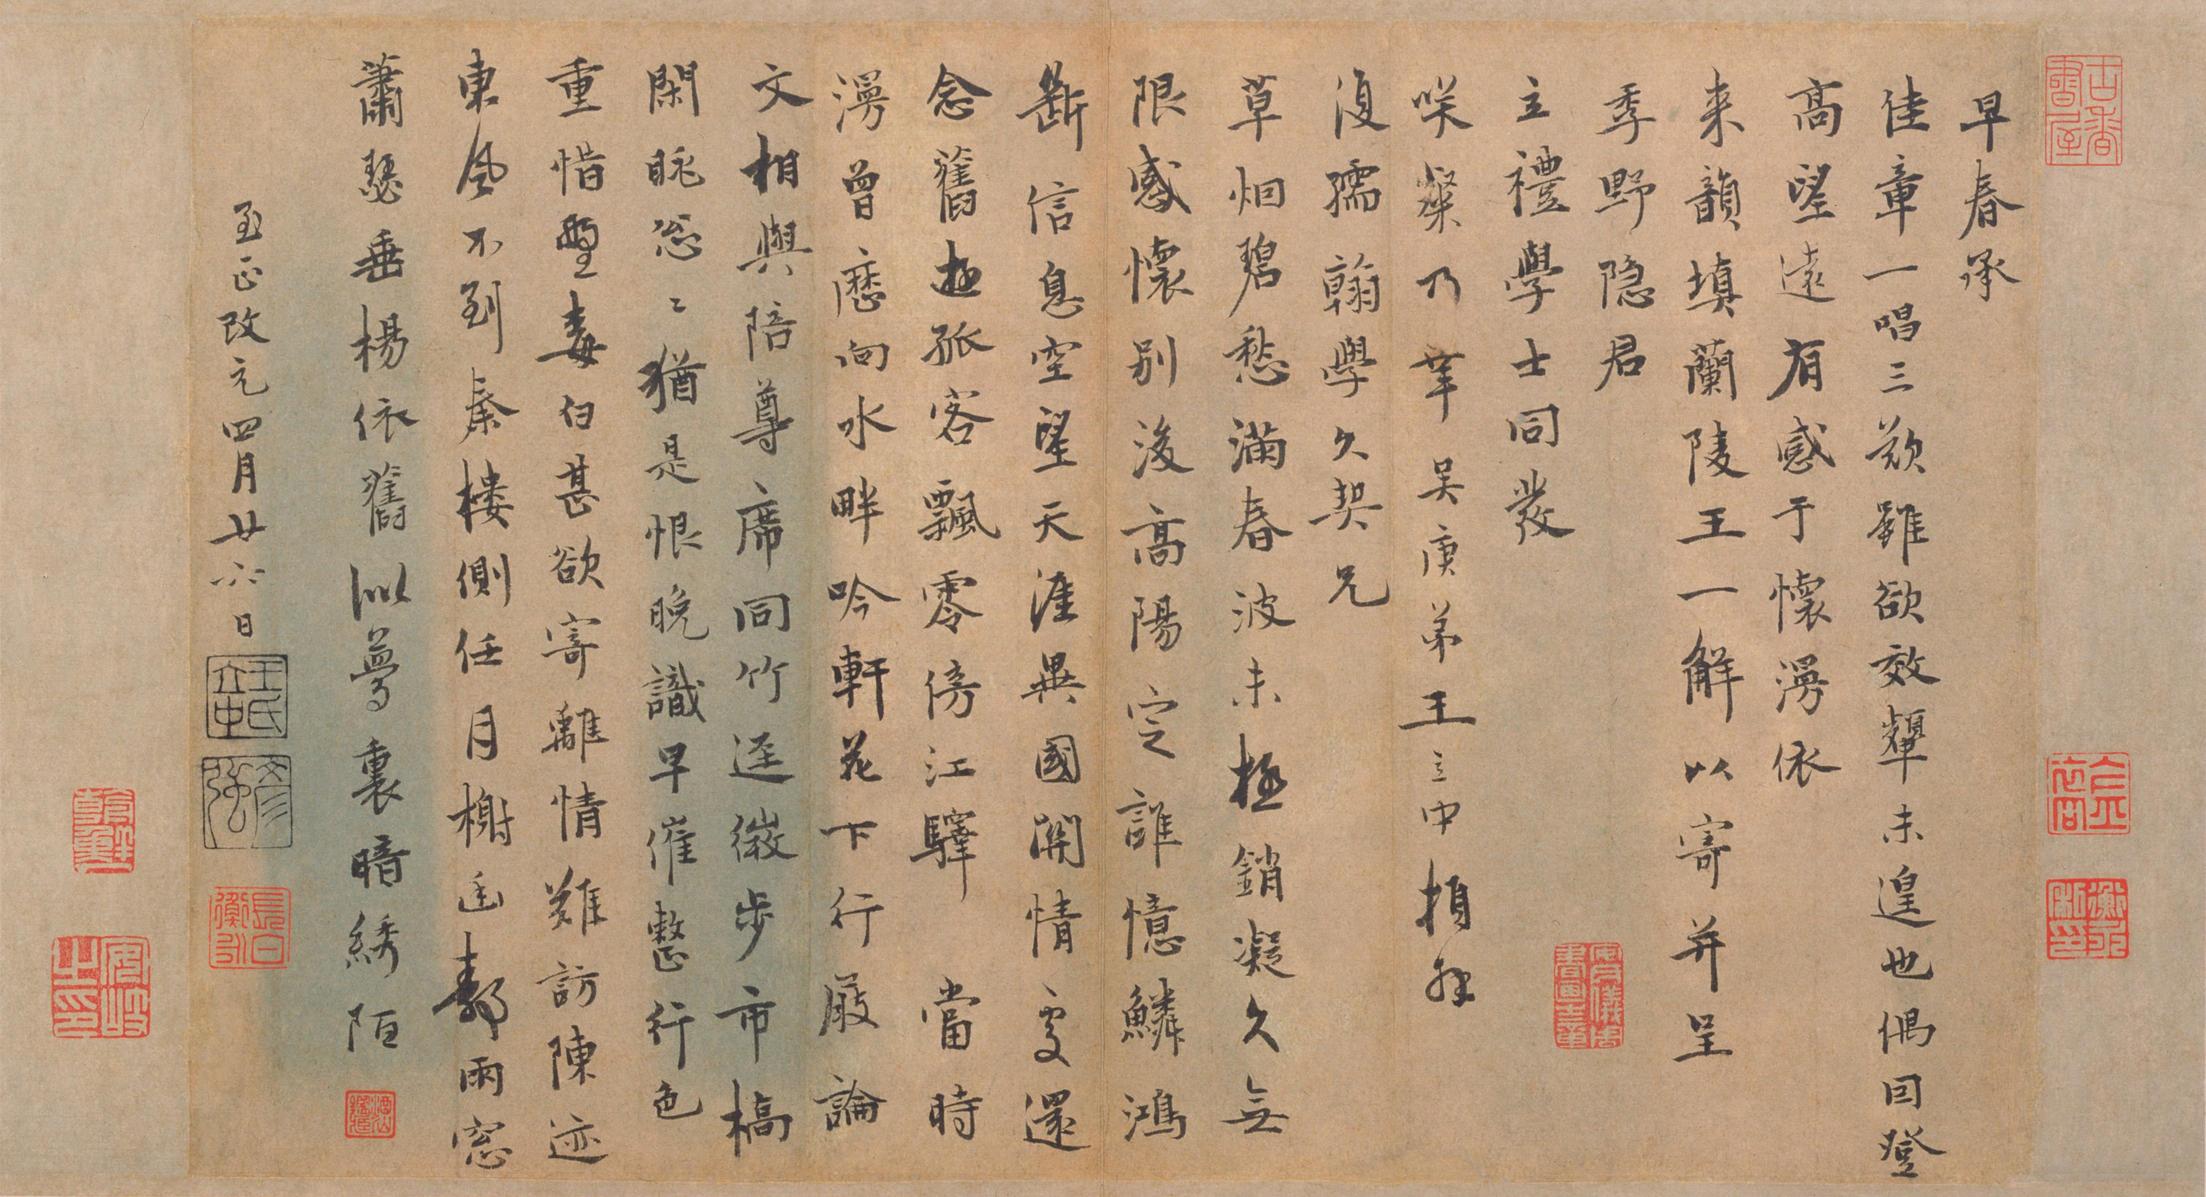 早春承
佳章一唱三歎雖欲效顰未遑也偶因登
高望遠有感于懷漫依
来韻填蘭陵王一解以寄并呈
季野隐君
立禮學士同發
咲粲乃幸吴庚弟王立中頓拜
復孺翰學久契兄
草烟碧愁滿春波未極銷凝久無
限感懷別後高陽定誰憶鱗鴻
斷信息空望天涯異國関情處還
念舊遊孤客飄零傍江驛 當時
漫曾歷向水畔吟軒花下行廚論
文相與陪尊席同竹逕微步市橋
閑眺怱〻猶是恨晚識早催整行色
重惜鬢毒白甚欲寄離情難訪陳迹
東風不到秦樓側任月榭迷雨窓
蕭瑟垂楊依舊似夢裏暗綉陌
至正改元四月廿六日
王氏立中
彦強